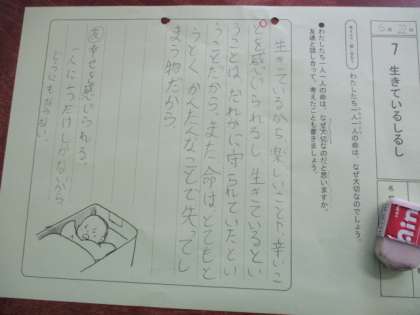 6月22日
7 生きているしるし
わたしたち一人一人の命は、なぜ大切なのでしょう。
●わたしたち一人一人の命は、なぜ大切なのだと思いますか。
友達と話し合って、考えたことも書きましょう。
生きているから、楽しいことや、辛いこ
とを感じられるし生きているとい
うことは、だれかに守られていたとい
うことだから。また命はとてもと
うとく、かんたんなことで失ってし
まう物だから
友 幸せを感じられる。
一人に1つだけしかないから
とりもどせない